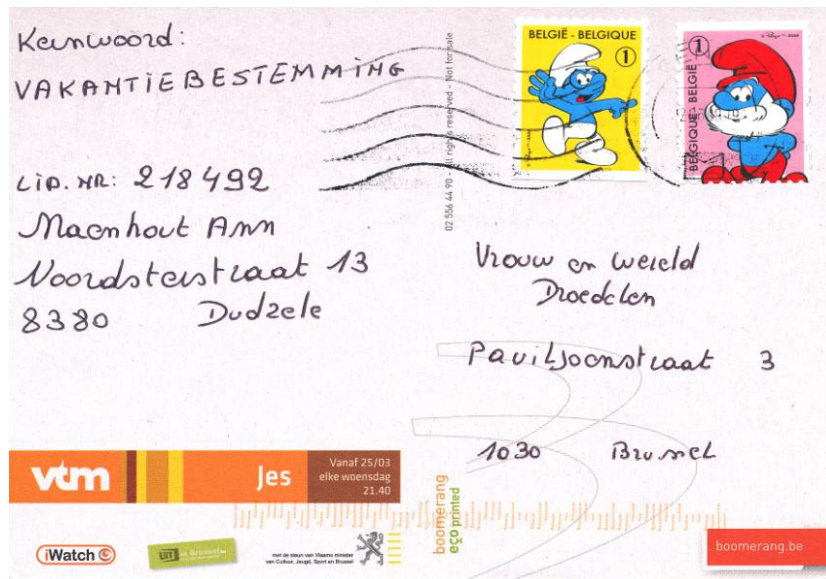 Kernwoord:
VAKANTIEBESTEMMING
LID. NR: 218492
Maenhout Ann
Noordsterstraat 13
8380 Dudzele
02 556 44 90 - All rights reserved - Not for sale
BELGIË - BELGIQUE
1
1
BELGIQUE - BELGIË
Vrouw en wereld
Droedelen
Paviljoenstraat 3
1030 Brussel
vtm
Jes
Vanaf 25/03
elke woensdag
21.40
boomerang
eco printed
iWatch
UiT
met de steun van Vlaams minister
van Cultuur, Jeugd, Sport en Brussel
boomerang.be